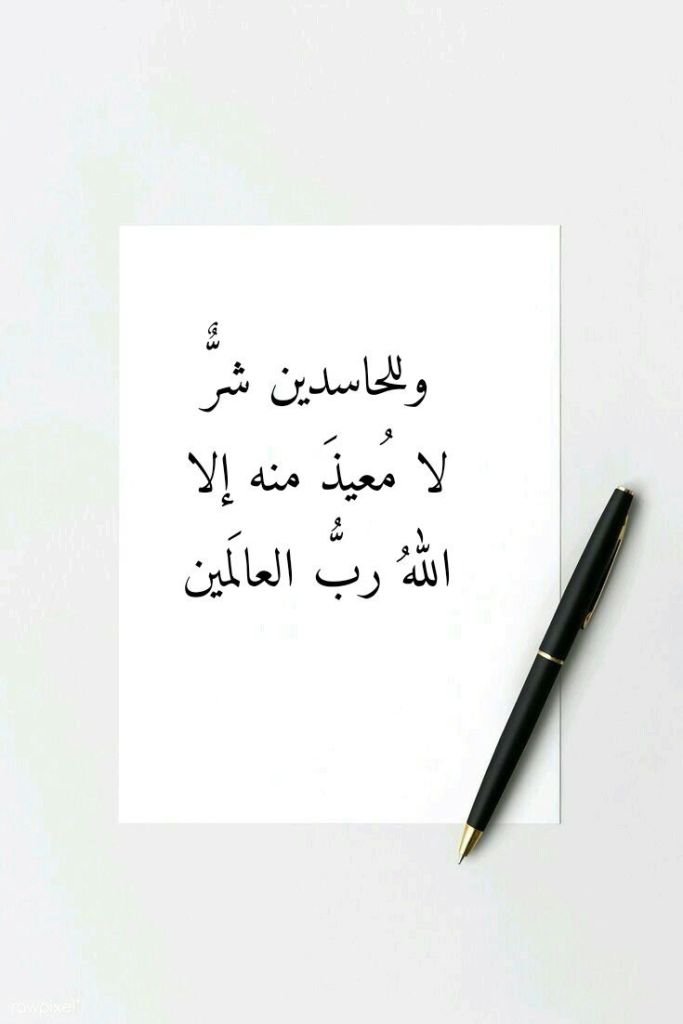 وللحاسدين شرٌّ
لا مُعيذَ منه إلا
اللهُ ربُّ العالَمين
rawpixel